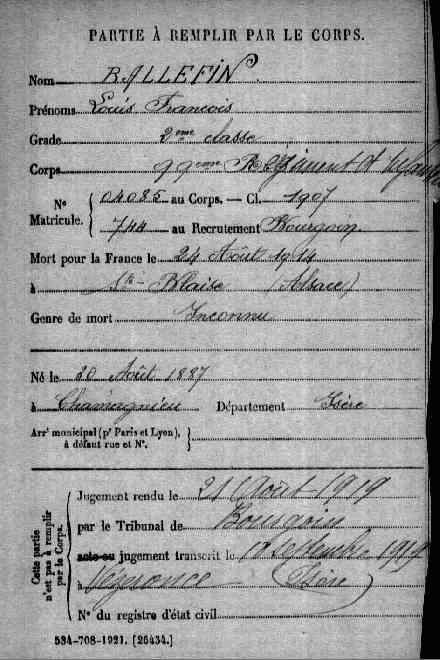 PARTIE À REMPLIR PAR LE CORPS.
Nom RALLEFIN.
Prénoms Louis François
Grade 2ème classe
Corps 99eme Régiment d'Infanterie
Nº Matricule. 04085 au Corps. — Cl. 1907
744 au Recrutement Bourgoin
Mort pour la France le 24 Août 1914
à Ste Blaise (Alsace)
Genre de mort Inconnu
Né le 30 Août 1887
à Chamagnieu Département Isère
Arrt municipal (pr Paris et Lyon), à défaut rue et Nº.
Cette partie n'est pas à remplir par le Corps.
Jugement rendu le 21 Août 1919
par le Tribunal de Bourgoin
acte ou jugement transcrit le septembre 1919
à (Isère)
Nº du registre d'état civil
534-708-1921. [26434.]